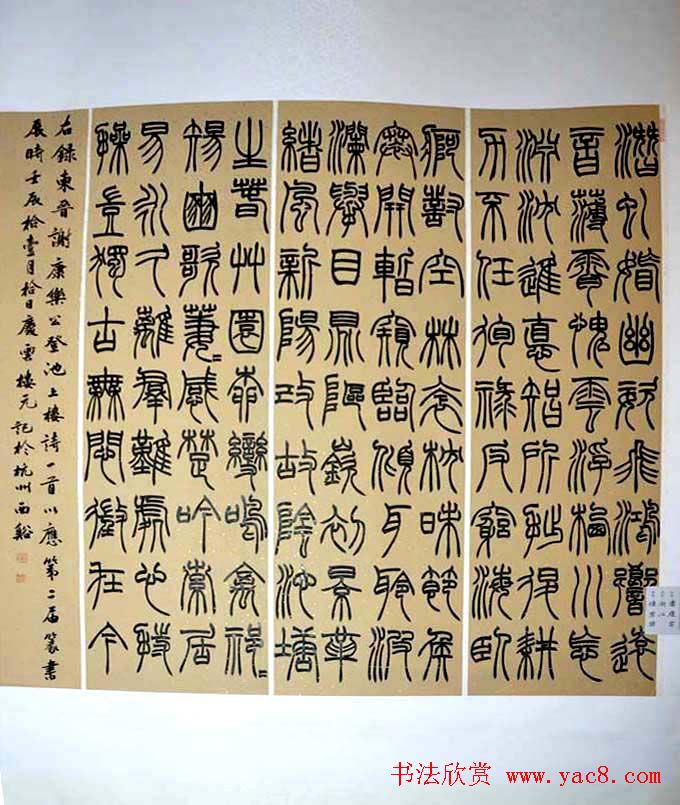 潛虬媚幽姿飛鴻響遠
音薄霄愧雲浮棲川怍
淵沈進悳智所拙退耕
力不任徇祿反窮海臥
痾對空林衾枕昧節候
褰開暫窺臨傾耳聆波
瀾舉目眺嶇嶔初景革
緒風新陽改故陰池塘
生春艸園柳變鳴禽祁=
傷豳歌萋=感楚吟索居
易永久離羣難處心持
操豈獨古無悶徵在今
右錄東晉謝康樂公登池上樓詩一首以應第二届篆書
展時壬辰拾壹月拾日慶雲樓元記於杭州西谿
书法欣赏 www.yac8.com